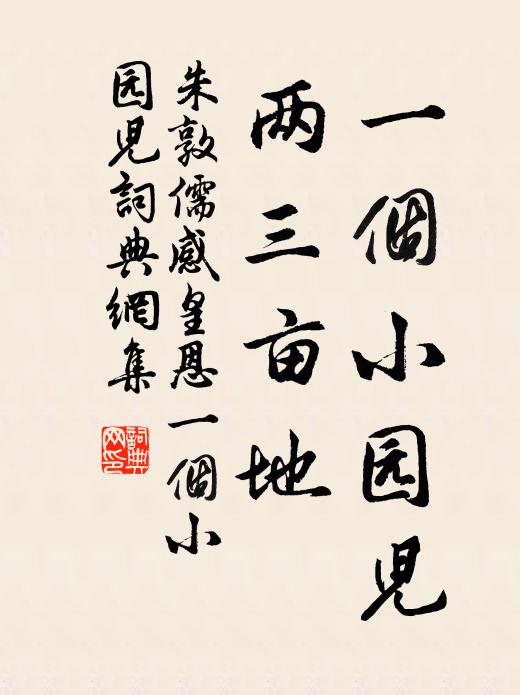 一個小园兒
两三亩地
朱敦儒感皇恩一個小
园兒詞典網集
詞典
网印